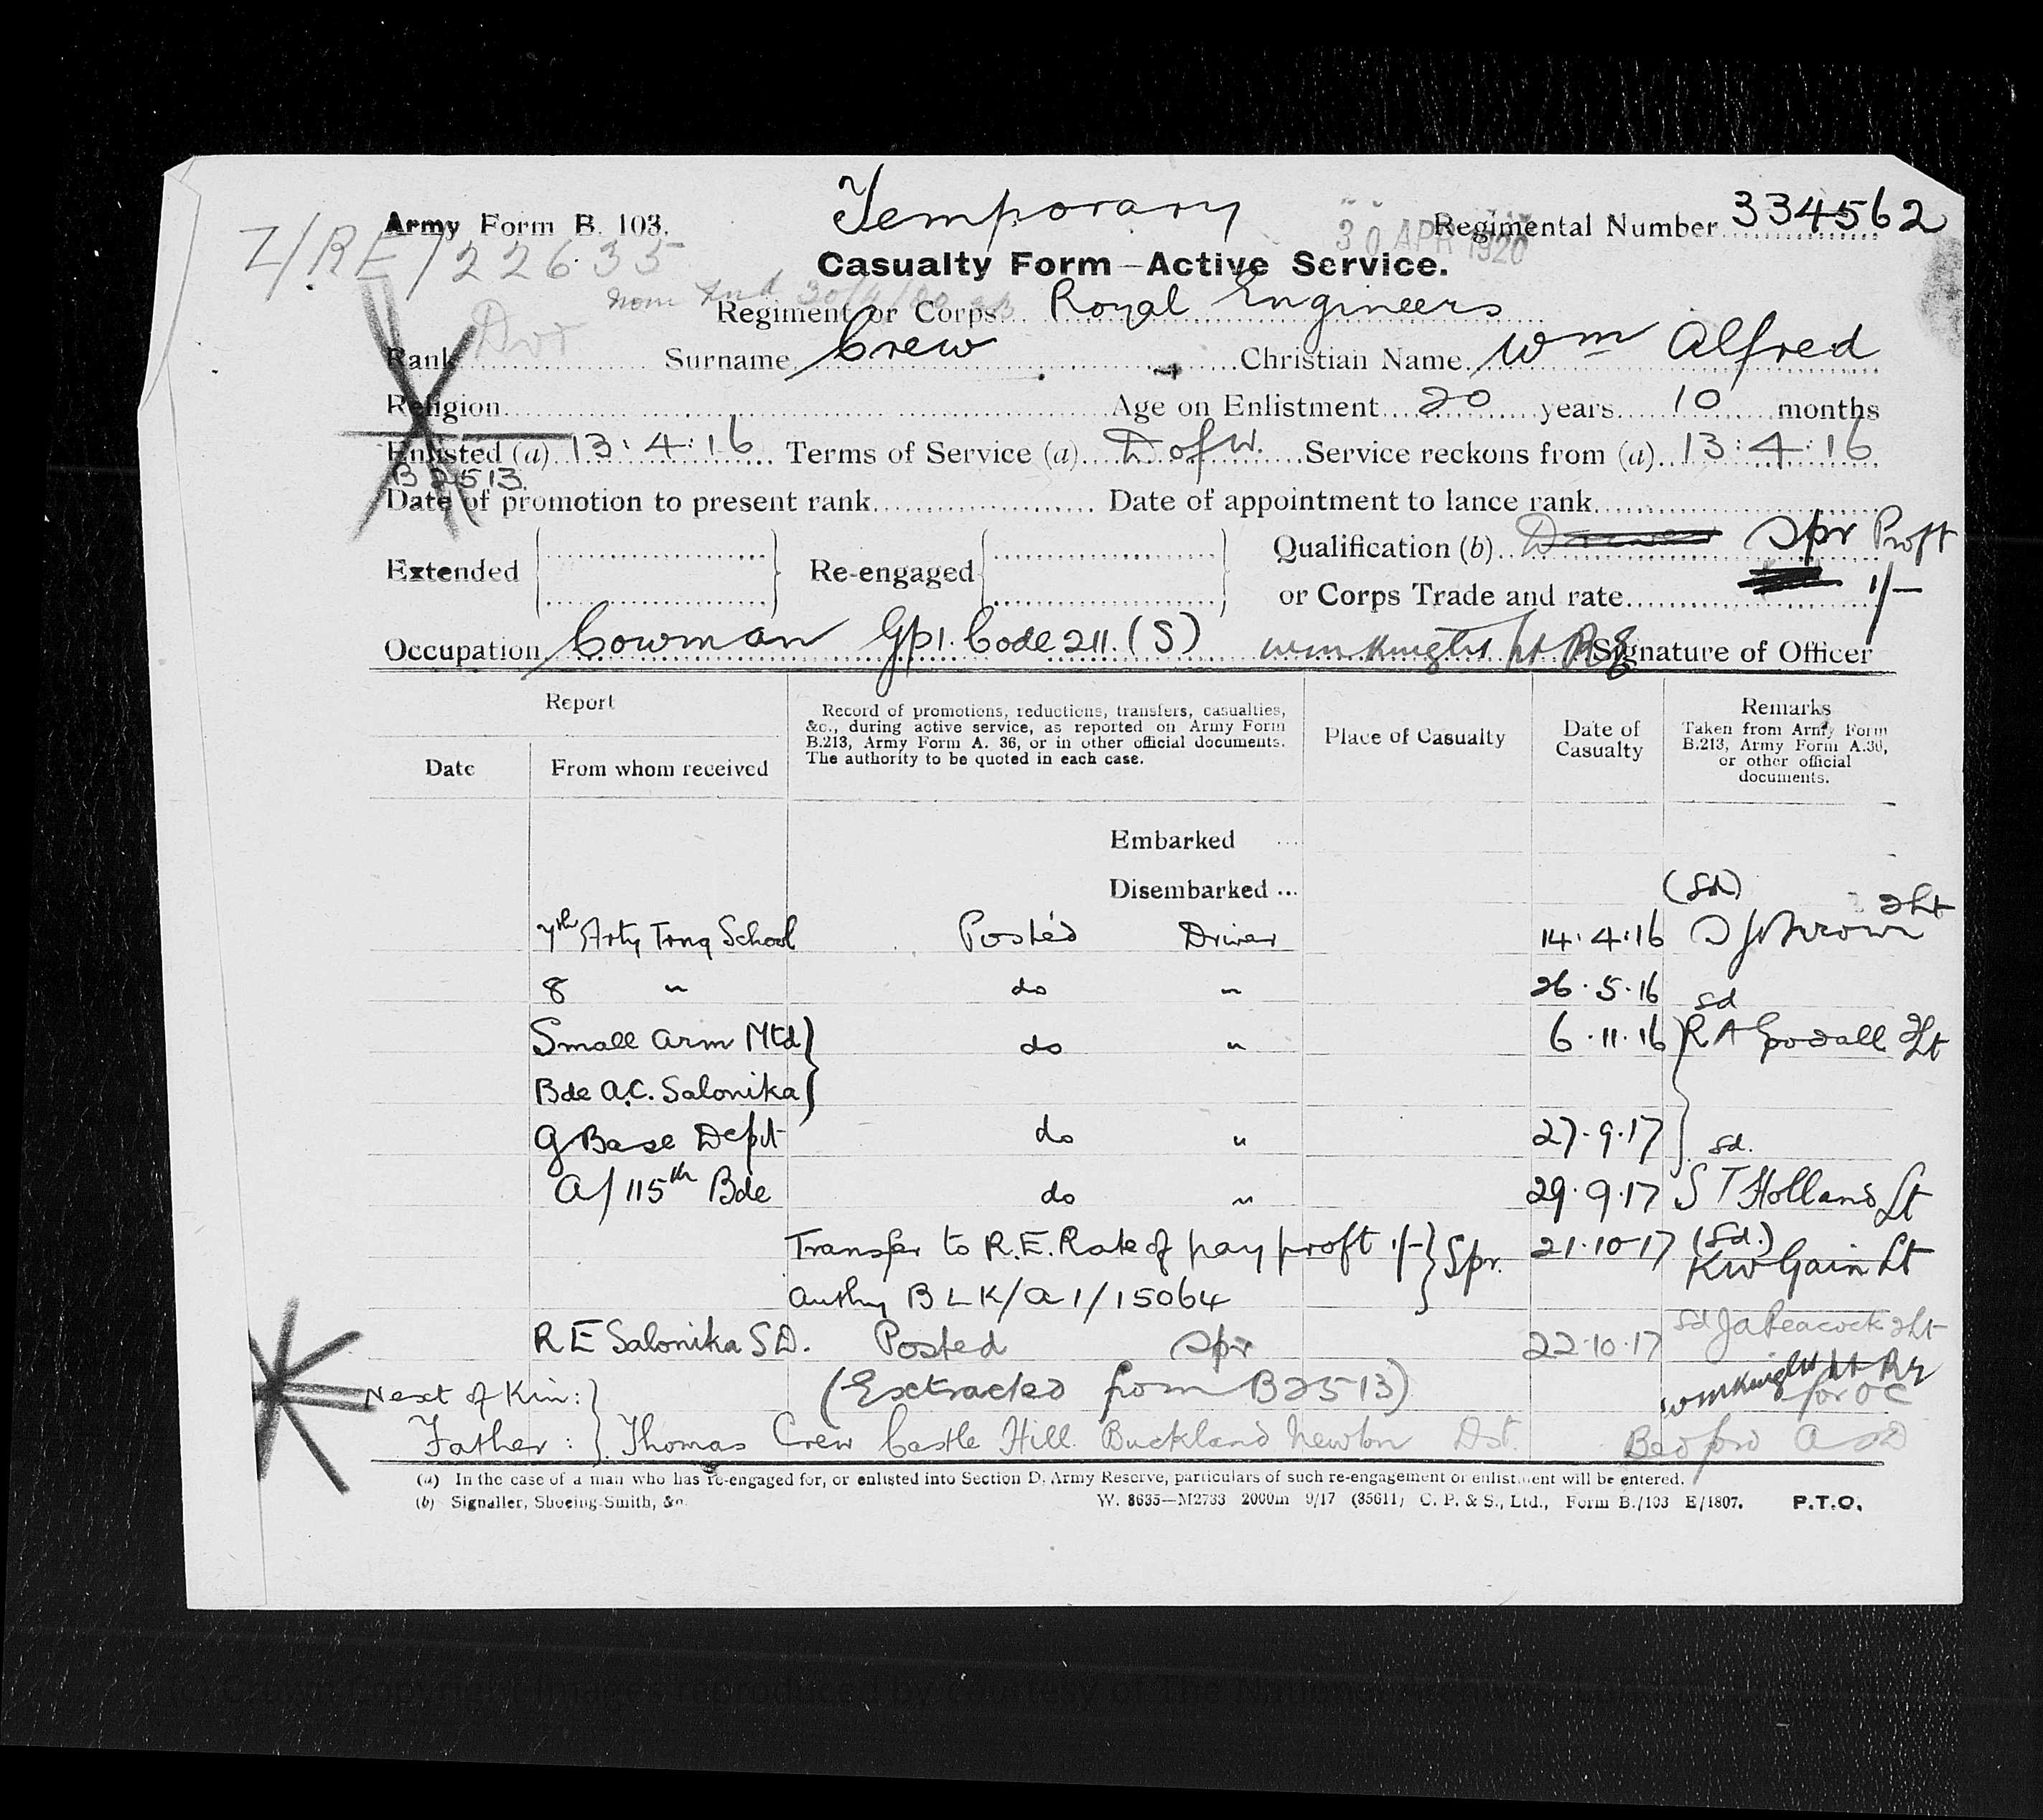 Temporary
Army Form B. 103.
Regimental Number 334562
Z/RE/22635
30 APR 1920
Casualty Form—Active Service.
Regiment or Corps Royal Engineers
Rank Dvr Surname Crew Christian Name Wm Alfred
Religion Age on Enlistment 20 years 10 months
Enlisted (a) 13:4:16 Terms of Service (a) D of W. Service reckons from (a) 13:4:16
B 2513.
Date of promotion to present rank Date of appointment to lance rank
Extended Re-engaged Qualification (b) Driver Spr Proft
or Corps Trade and rate 1/-
Occupation Cowman Gp 1. Code 211. (S) Wm Knight Lt RE Signature of Officer
Report
Date
From whom received
Record of promotions, reductions, transfers, casualties,
&c., during active service, as reported on Army Form
B.213, Army Form A. 36, or in other official documents.
The authority to be quoted in each case.
Place of Casualty
Date of
Casualty
Remarks
Taken from Army Form
B.213, Army Form A.36,
or other official
documents.
Embarked ...
Disembarked ...
(Sd)
7th Arty Trng School Posted Driver 14.4.16 Brown 2Lt
8 " do " 26.5.16
Sd
Small Arm Mtd do " 6.11.16 R A Goodall 2Lt
Bde A.C. Salonika
G Base Depôt do " 27.9.17 Sd.
A/115th Bde do " 29.9.17 S T Holland Lt
Transfer to R.E. Rate of pay proft 1/- Spr. 21.10.17 (Sd.)
KW Gain Lt
Authy B L K/A1/15064
R E Salonika S D. Posted Spr 22.10.17 Sd Ja Peacock 2Lt
Next of Kin: (Extracted from B2513) Wm Knight Lt RE
for OC
Father: Thomas Crew Castle Hill Buckland Newton Dst. Bedford
(a) In the case of a man who has re-engaged for, or enlisted into Section D, Army Reserve, particulars of such re-engagement or enlistment will be entered.
(b) Signaller, Shoeing-Smith, &c.
W. 8635—M2733 2000m 9/17 (35611) C. P. & S., Ltd., Form B./103 E/1807. P.T.O.